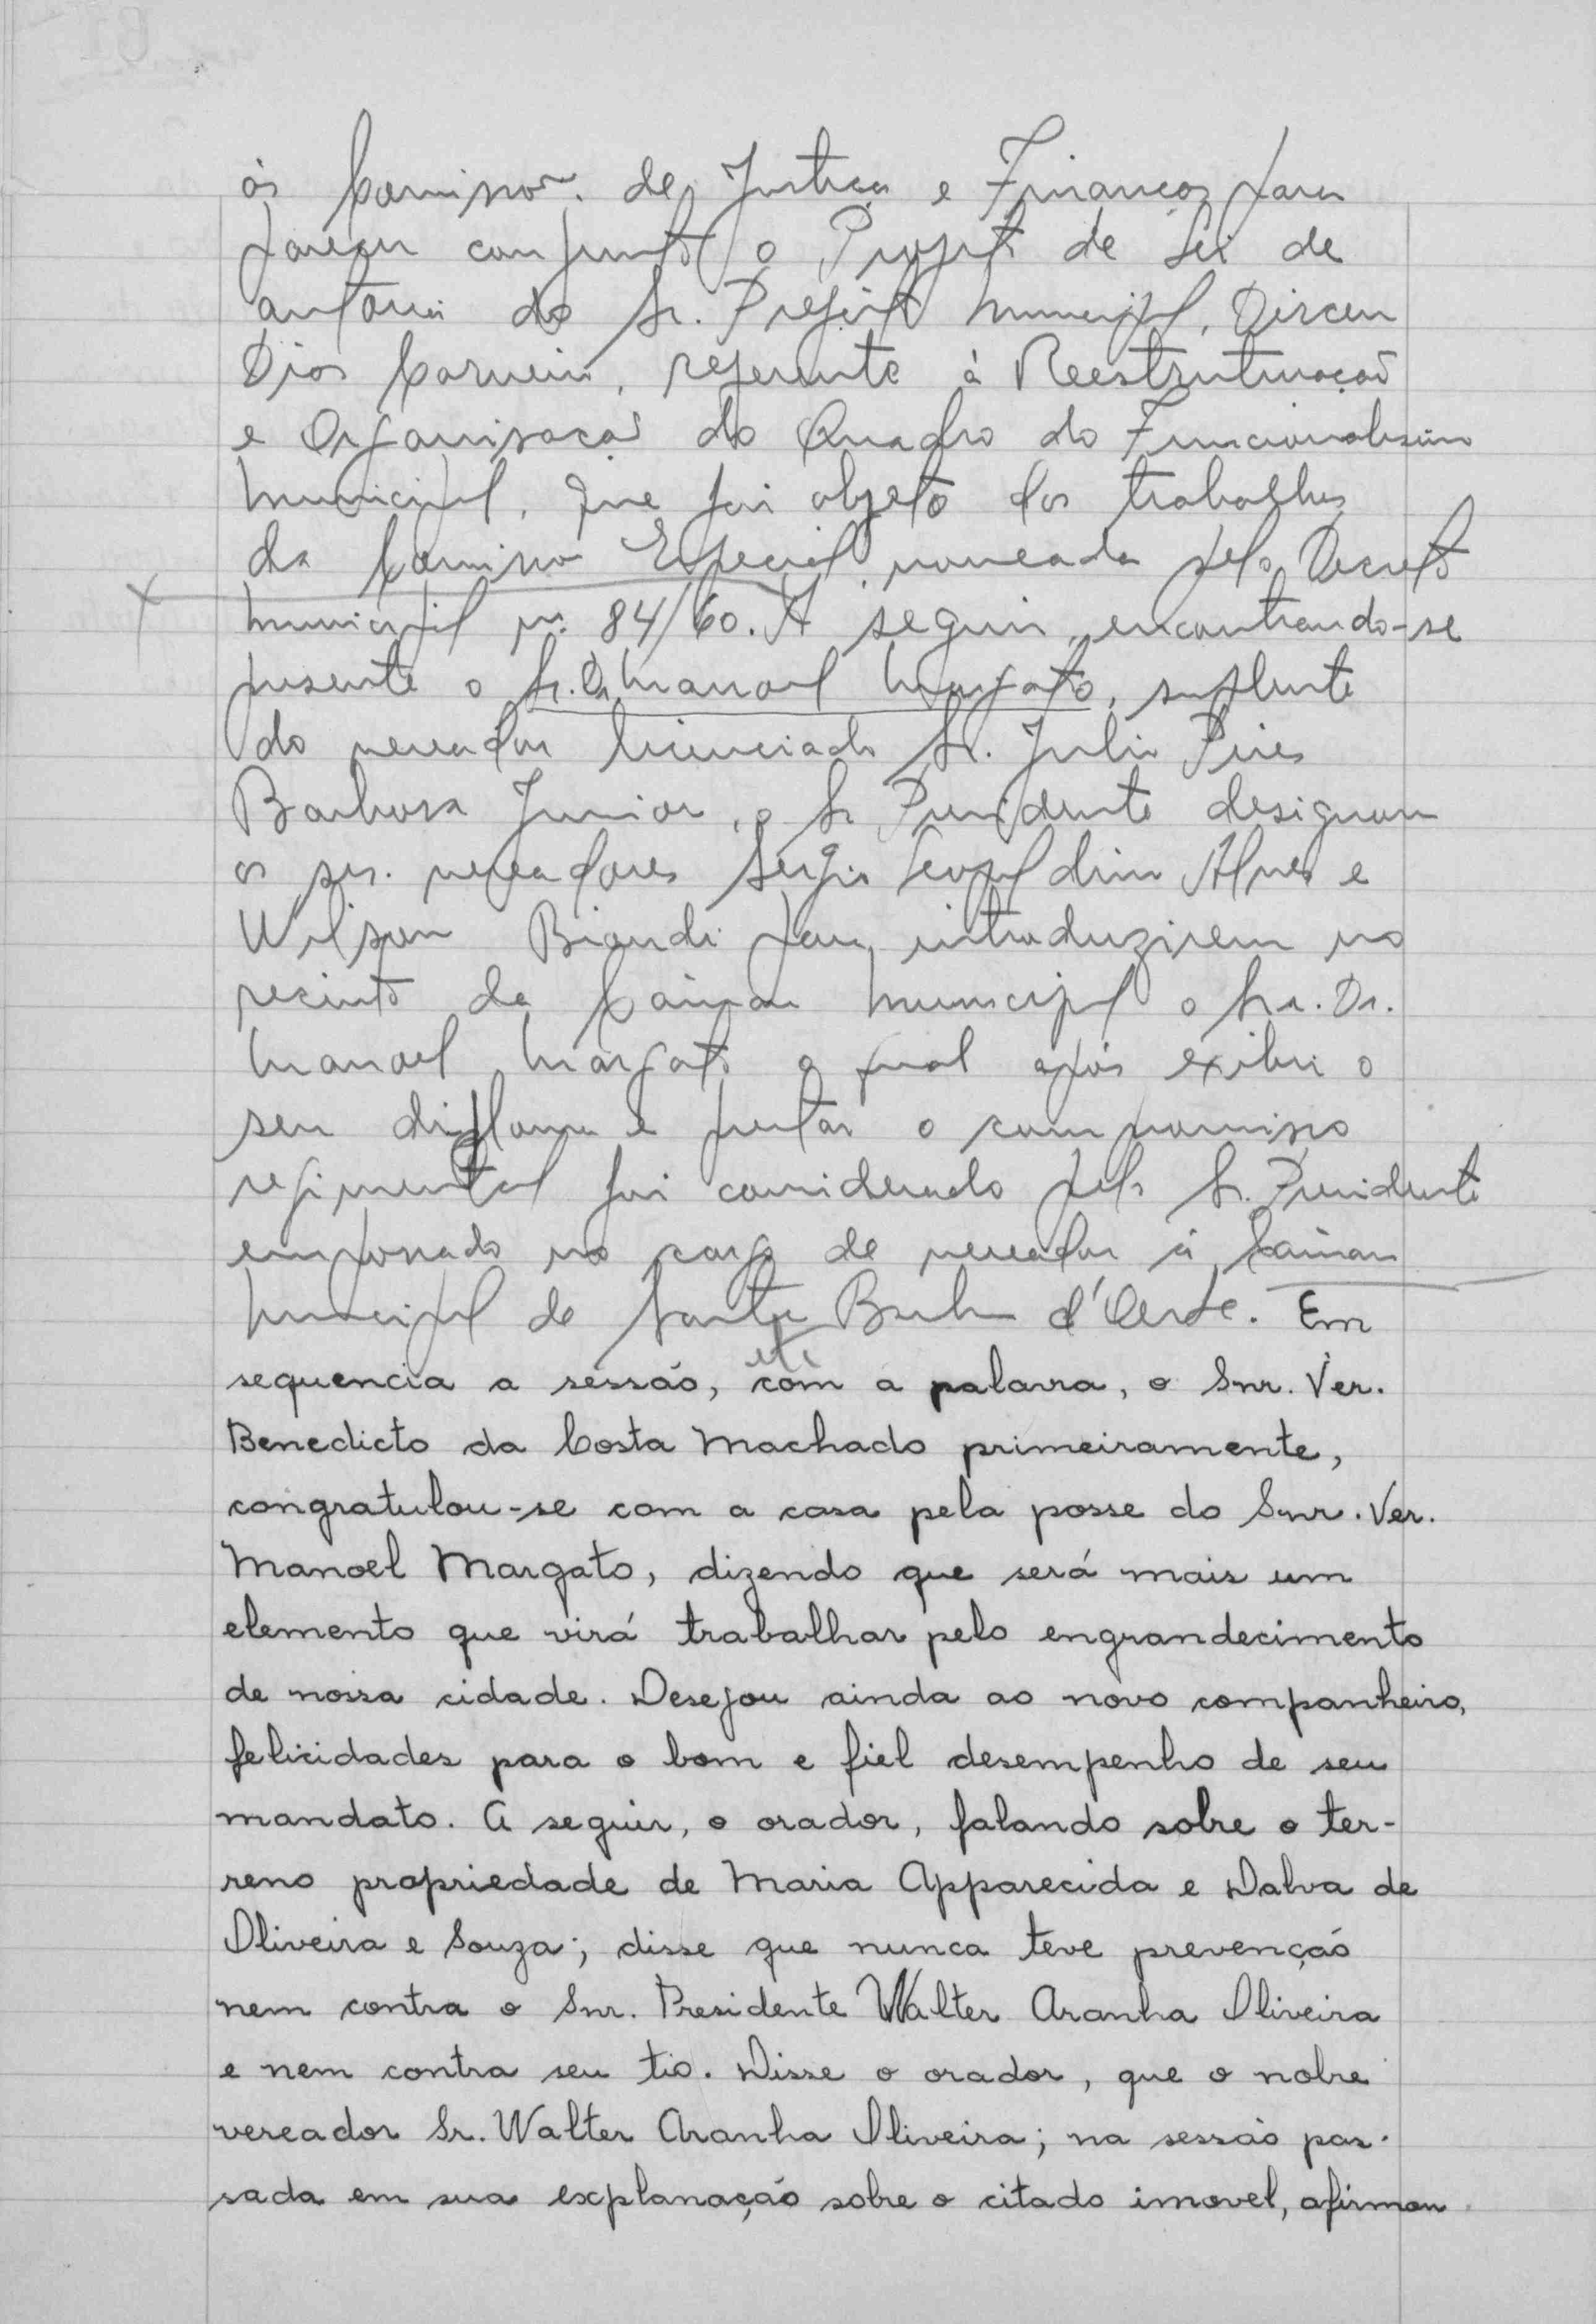 às Comissões de Justiça e Finanças para
parecer conjunto o Projeto de Lei de
autoria do Sr. Prefeito Municipal, Dirceu
Dias Carneiro, referente à Reestruturação
e Organisação do Quadro do Funcionalismo
Municipal, que foi objeto dos trabalhos
da Comissão Especial nomeada pelo Decreto
Municipal nº 84/60. A seguir, encontrando-se
presente o Sr. Dr. Manoel Margato, suplente
do vereador licenciado Sr. Julio Pires
Barbosa Junior, o Sr Presidente designou
os srs. vereadores Sergio Leopoldino Alves e
Wilson para introduzirem no
recinto da Câmara Municipal o Snr. Dr.
Manoel Margato o qual após exibir o
seu diploma e prestar o compromisso
regimental foi considerado pelo Sr. Presidente
empossado no cargo de vereador à Câmara
Municipal de Santa Barbara d'Oeste. Em
sequencia a sessão, com a palavra, o Snr. Ver.
Benedicto da Costa Machado primeiramente,
congratulou-se com a casa pela posse do Snr. Ver.
Manoel Margato, dizendo que será mais um
elemento que virá trabalhar pelo engrandecimento
de nossa cidade. Desejou ainda ao novo companheiro,
felicidades para o bom e fiel desempenho de seu
mandato. A seguir, o orador, falando sobre o ter-
reno propriedade de Maria Apparecida e Dalva de
Oliveira e Souza; disse que nunca teve prevenção
nem contra o Snr. Presidente Walter Aranha Oliveira
e nem contra seu tio. Disse o orador, que o nobre
vereador Sr. Walter Aranha Oliveira; na sessão pas-
sada em sua explanação sobre o citado imovel, afirmou